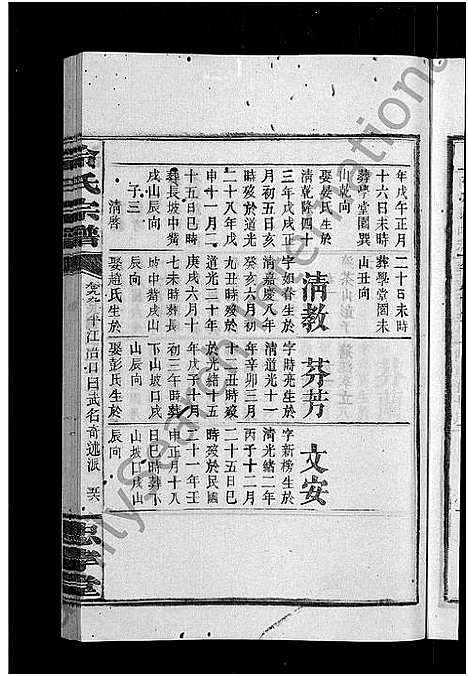 年戊午正月二十日未時
十六日未時葬學堂園未
葬學堂園巽山丑向
山乾向
娶晏氏生於
清乾隆四十
三年戊戌正
月初五日亥
時歿於道光
二十八年戊
申十一月二
十五日巳時
葬長坡中嘴
戌山辰向
子三
清啓
清教
字如春生於
清嘉慶八年
癸亥六月初
九丑時歿於
道光三十年
庚戌六月十
七未時葬長
坡中嘴戌山
辰向
娶趙氏生於
芬芳
字時亮生於
清道光十一
年辛卯三月
十三丑時歿
於光緒十五
年戊子十月
初三年時葬
下山坡口戌
山辰向
娶彭氏生於
文安
字新榜生於
清光緒二年
丙子十二月
二十五日巳
時歿於民國
三十一年壬
申正月十八
日巳時葬下
山坡口戌山
辰向
氏宗譜
平江冶口日武名奇述派
忠孝堂
myseach International